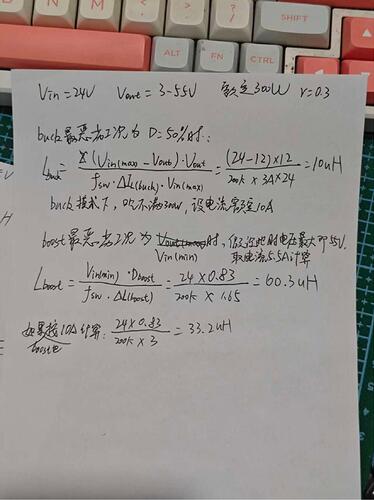 SHIFT
ALT
FN
CTRL
Vin=24V Vout=3-55V 额定300W r=0.3
buck最恶劣工况为 D=50%时:
Lbuck= (Vin(max)-Vout)·Vout / fsw·ΔL(buck)·Vin(max) = (24-12)×12 / 200k×3A×24 = 10uH
buck模式下,吃不满300W,设电流额定10A
boost最恶劣工况为 Vin(min)时, 电压最大即55V.
取电流5.5A计算
Lboost= Vin(min)·Dboost / fsw·ΔL(boost) = 24×0.83 / 200k×1.65 = 60.3uH
如果按10A计算: 24×0.83 / 200k×3 = 33.2uH